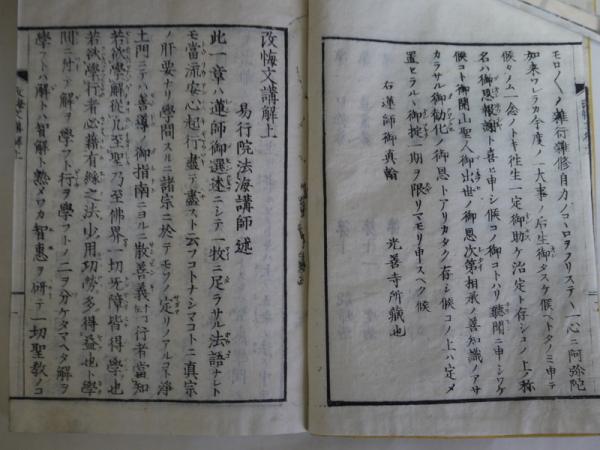 モロ〱ノ雑行雑修自力ノコヽロヲフリステヽ一心ニ阿弥陀
如来ワレラカ今度ノ一大事ノ後生御タスケ候ヘトタノミ申テ
候タノム一念ノトキ往生一定御助ケ治定ト存シコノ上ノ称
名ハ御恩報謝ト喜ヒ申シ候コノ御コトハリ聴聞ニ申シワケ
候コト御開山聖人御出世ノ御恩次第相承ノ善知識ノアサ
カラサル御勧化ノ御恩トアリカタク存シ候コノ上ハ定メ
置セラルヽ御掟一期ヲ限リマモリ申スヘク候
右蓮師御真翰
光善寺所蔵也
改悔文講解上
易行院法海講師述
此一章ハ蓮師御選述ニシテ一枚ニ足ラサル法語ナレト
モ當流安心起行盡ク盡スト云フコトナシマコトニ真宗
ノ肝要ナリ學問スルニ諸宗ニ於テモソノ定リアルコト浄
土門ニテハ善導ノ御指南ニヨルニ散善義ニ行者當知
若欲學解從凡至聖乃至佛果一切无障皆得學也
若欲學行者必藉有縁之法少用功勞多得益也ト學
問ニ付テ解ヲ學フト行ヲ學フトノ二ヲ分ケタマヘタ解ヲ
學フトハ解ト智解ト熟メワカ智惠ヲ研テ一切聖教ノコ
改悔文講解上